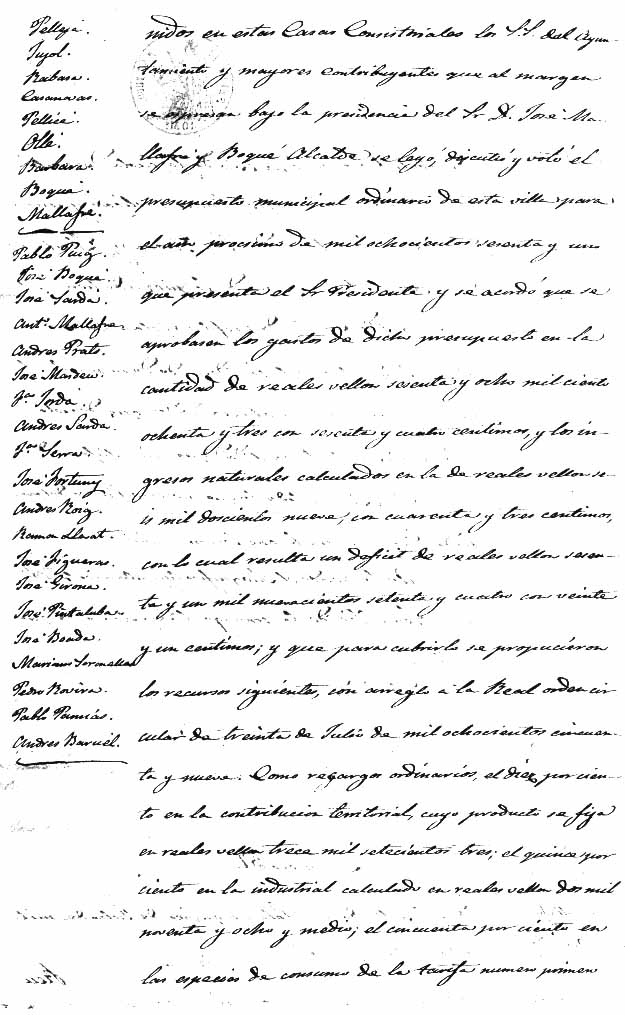 Pellejà.
Jujol.
Rabasa.
Casanovas.
Pellicé
Ollé.
Barbará.
Boqué.
Mallafré.
Pablo Puig.
José Boqué
José Sardá.
Antº Mallafré
Andres Prats.
José Masdeu.
Jn Jordá.
Andres Sardá.
Jn Serra
José Fortuny
Andres Roig.
Ramon Llorat.
José Figueras.
José Girona.
José Pintaluba.
José Bonda.
Mariano
Pedro Rovira.
Pablo Pamiás.
Andres Baruél.
nidos en estas Casas Consistoriales los S.S. del Ayun-
tamiento y mayores contribuyentes que al margen
se espresan bajo la presidencia del Sr D. José Ma-
llafré y Boqué Alcalde se leyó, discutió y votó el
presupuesto municipal ordinario de esta villa para
el año procsimo de mil ochocientos sesenta y uno
que presenta el Sr Presidente y se acordó que se
aprobasen los gastos de dicho presupuesto en la
cantidad de reales vellon sesenta y ocho mil ciento
ochenta y tres con sesenta y cuatro centimos, y los in-
gresos naturales calculados en la de reales vellon se-
is mil doscientos nueve, con cuarenta y tres centimos,
con lo cual resulta un deficit de reales vellon sesen-
ta y un mil nuevecientos setenta y cuatro con veinte
y un centimos; y que para cubrirlo se propucieron
los recursos siguientes, con arreglo á la Real orden cir
cular de treinta de Julio de mil ochocientos cincuen-
ta y nueve. Como recargos ordinarios, el diez por cien-
to en la contribucion territorial, cuyo producto se fija
en reales vellon trece mil setecientos tres; el quince por
ciento en la industrial calculado en reales vellon dos mil
noventa y ocho y medio; el cincuenta por ciento en
las especies de consumo de la tarifa numero primero